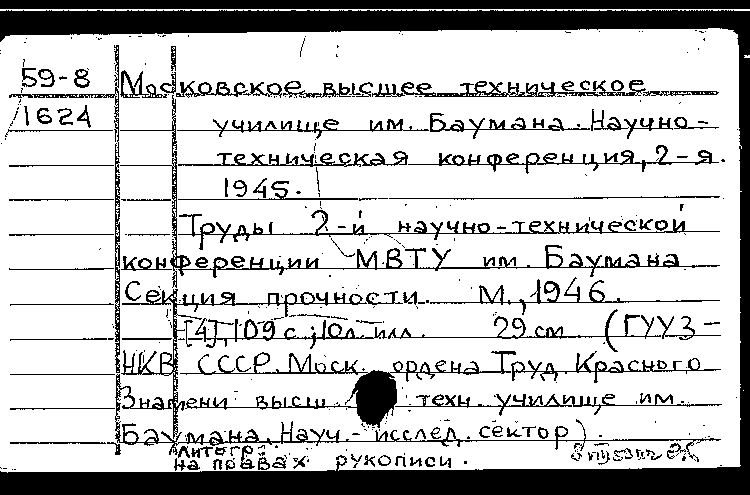 59-8 Московское высшее техническое
1624 училище им. Баумана. Научно-
техническая конференция, 2-я.
1945.
Труды 2-й научно-технической
конференции МВТУ им. Баумана
Секция прочности. М., 1946.
[4], 109 с.; 10л. илл. 29 см (ГУУЗ-
НКВ СССР. Моск. ордена Труд. Красного
Знамени высш. техн. училище им.
Баумана. Науч.-исслед. сектор).
Литогр.
на правах рукописи.